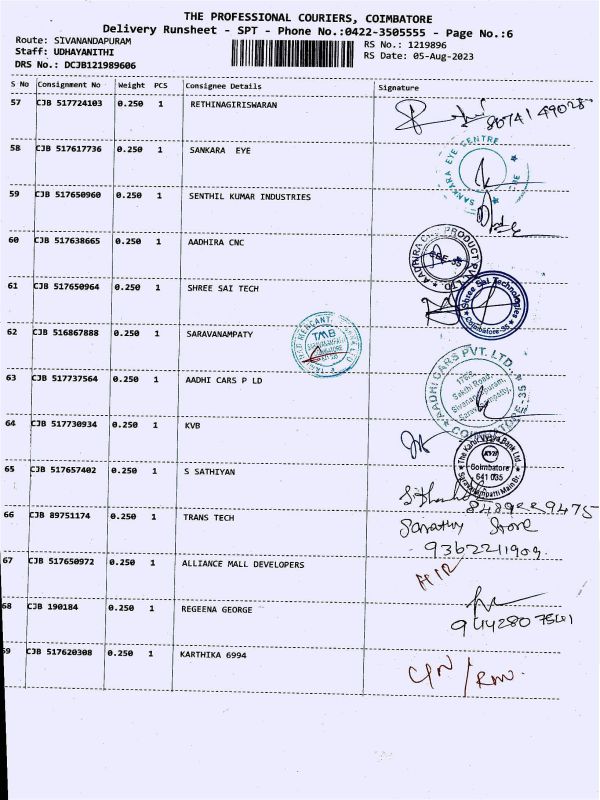 THE PROFESSIONAL COURIERS, COIMBATORE
Delivery Runsheet - SPT - Phone No.:0422-3505555 - Page No.:6
Route: SIVANANDAPURAM
RS No.: 1219896
Staff: UDHAYANITHI
RS Date: 05-Aug-2023
DRS No.: DCJB121989606
S No Consignment No Weight PCS Consignee Details Signature
57 CJB 517724103 0.250 1 RETHINAGIRISWARAN
58 CJB 517617736 0.250 1 SANKARA EYE
SANKARA EYE CENTRE
59 CJB 517650960 0.250 1 SENTHIL KUMAR INDUSTRIES
60 CJB 517638665 0.250 1 AADHIRA CNC
AADHIRA CNC PRODUCT
61 CJB 517650964 0.250 1 SHREE SAI TECH
Shree Sai Technologies
Coimbatore-35
62 CJB 516867888 0.250 1 SARAVANAMPATY
TMB
63 CJB 517737564 0.250 1 AADHI CARS P LD
AADHI CARS PVT. LTD.,
Sathi Road,
Sivanandapuram,
Saravanampatty,
COIMBATORE-35
64 CJB 517730934 0.250 1 KVB
The Karur Vysya Bank Ltd
KVB
Coimbatore
641 035
Saravanampatti Main Br.
65 CJB 517657402 0.250 1 S SATHIYAN
66 CJB 89751174 0.250 1 TRANS TECH
Sarathy Store
67 CJB 517650972 0.250 1 ALLIANCE MALL DEVELOPERS
68 CJB 190184 0.250 1 REGEENA GEORGE
69 CJB 517620308 0.250 1 KARTHIKA 6994